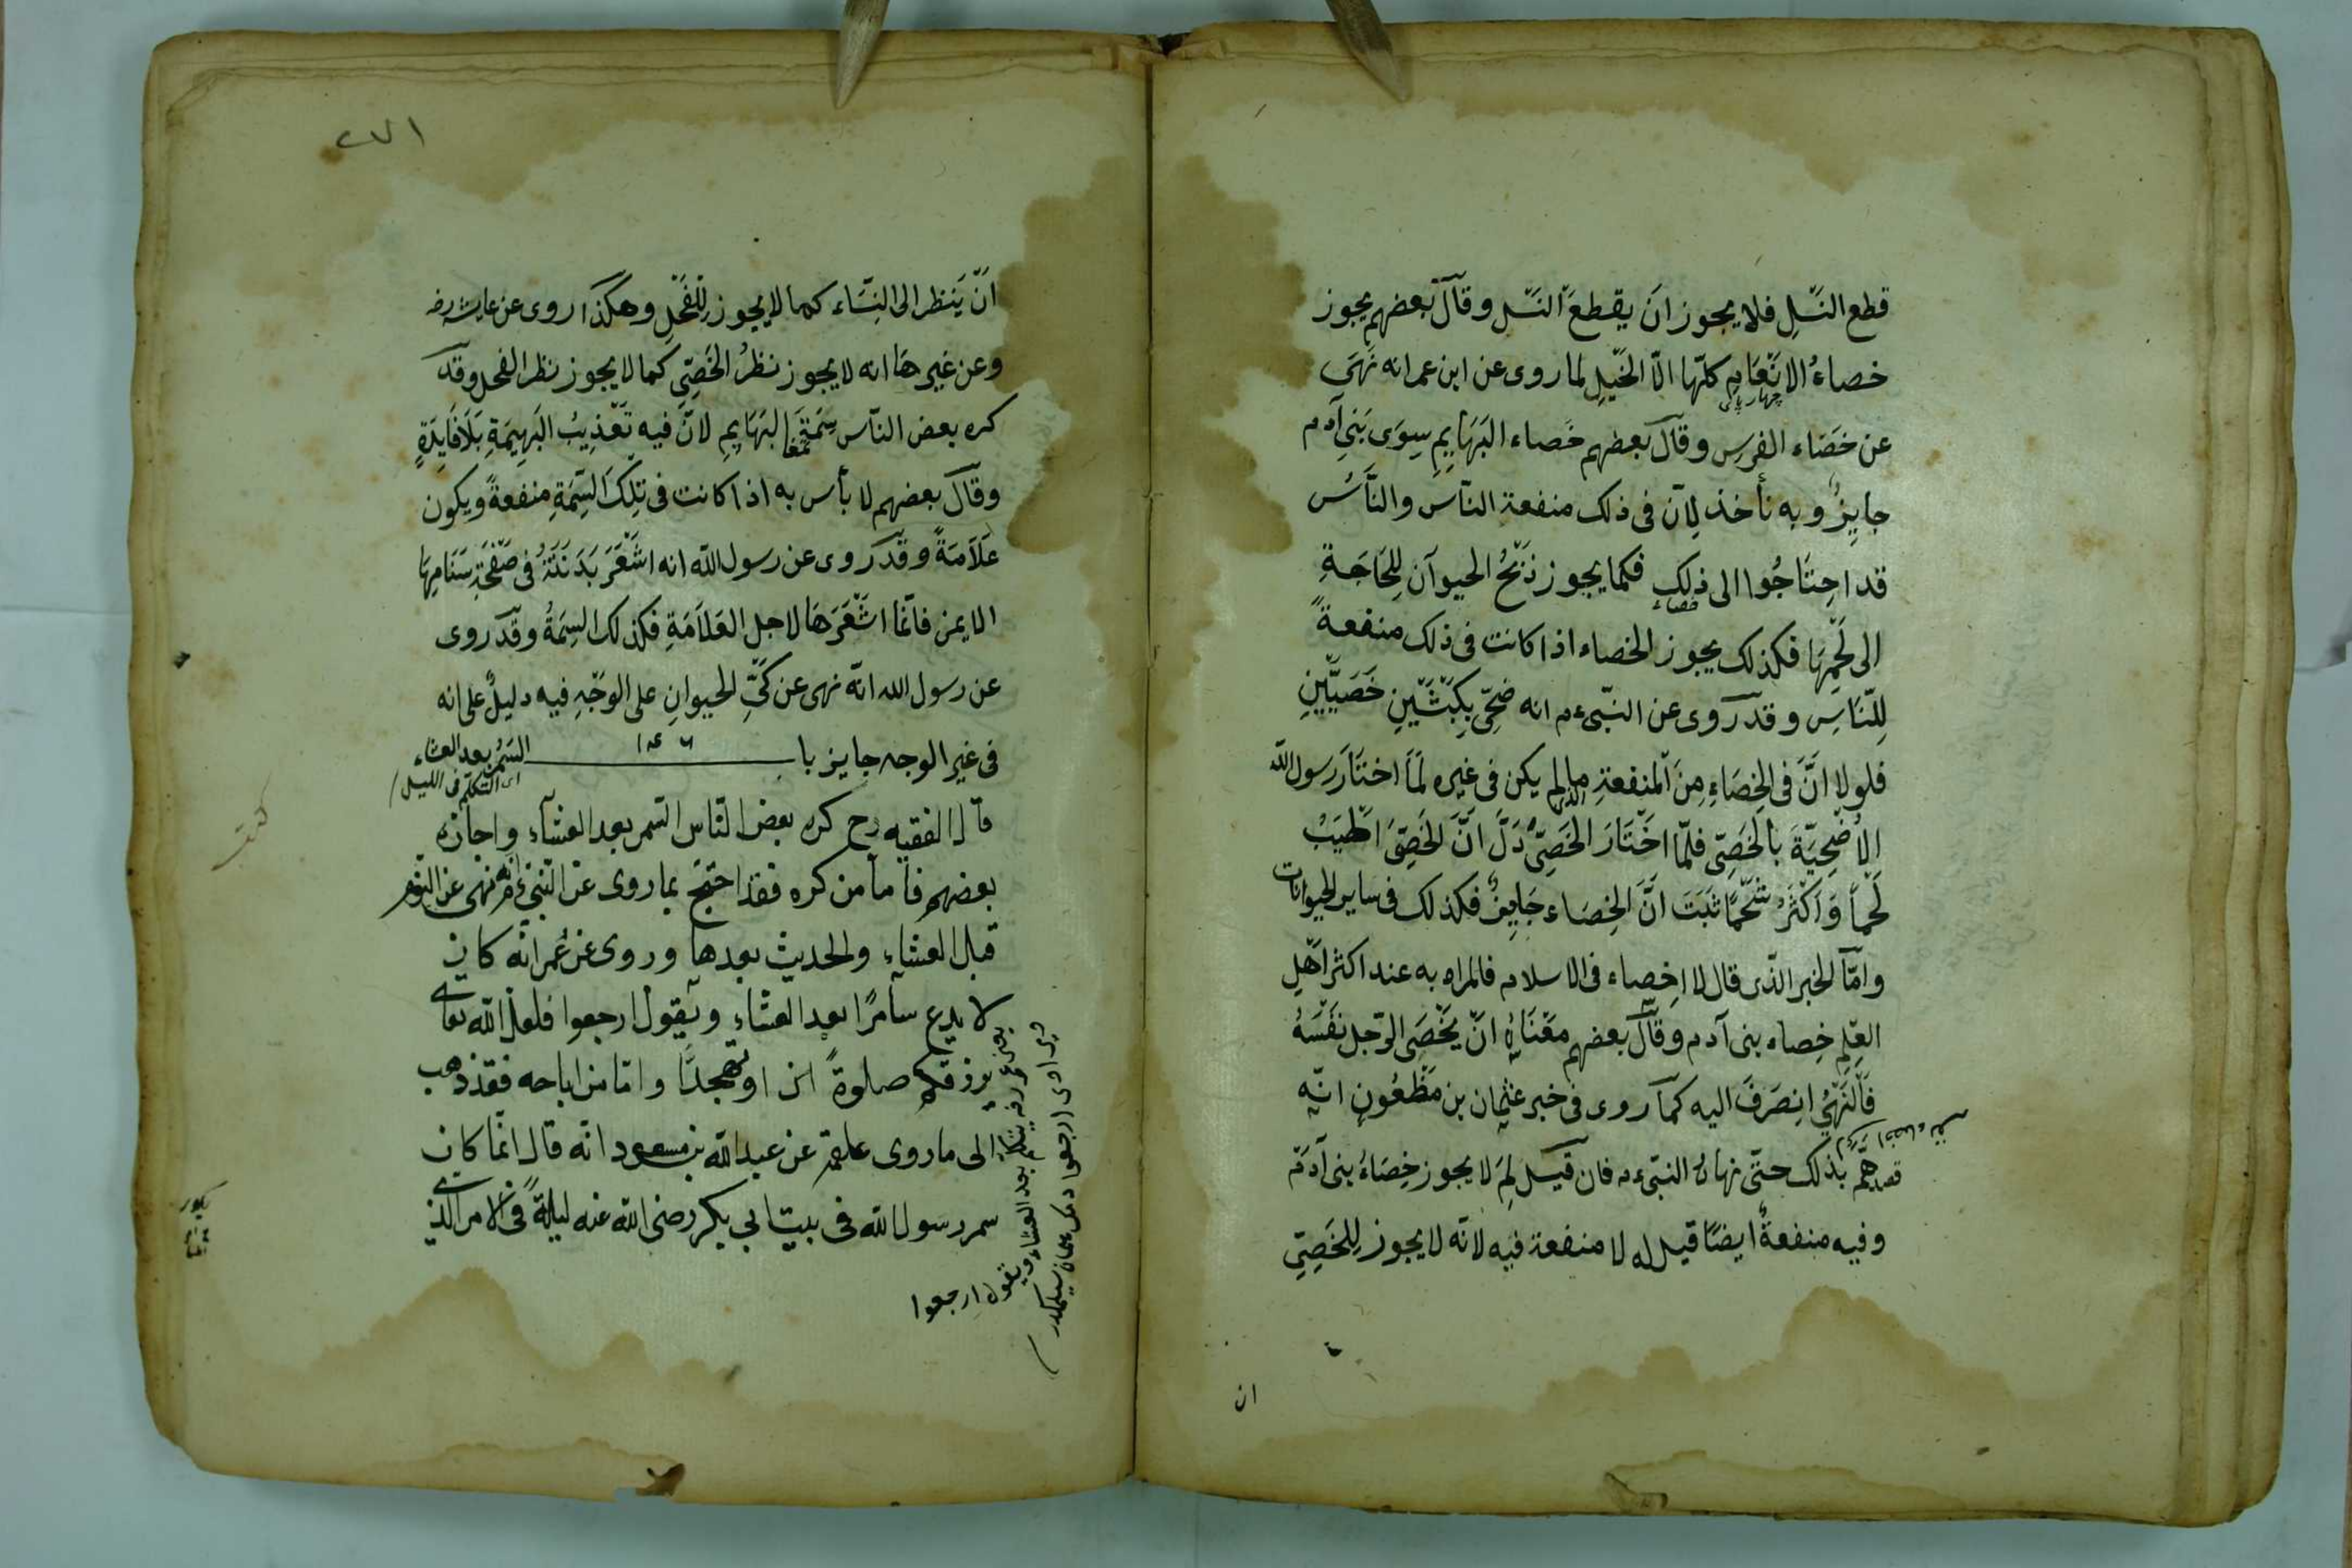 قطع النَّسْلِ فلا يجوز اَن يقطعَ النَّسْل وقال بعضهم يجوز
خصاءُ الاَنْعَامِ كلّها الّا الخَيْلِ لما روى عن ابن عمر انه نَهَى
چهار پای
عن خَصَاء الفرسِ وقال بعضهم خصاء البَهَايِمِ سِوَى بَنِى آدم
جايِزٌ وبه نأخذ لِاَنّ فى ذلك منفعة النّاس والنَّاسُ
قد احِتَاجُوا الى ذلِك فكما يجوز ذَبْحُ الحيوآن لِلحَاجَةِ
خصاء
الى لَحْمِهَا فكذلك يجوز الخصاء اذا كانت فى ذلك منفعةً
لِلنَّاسِ وقد روى عن النّبىء م انه ضحّى بِكَبْشَيْنِ خَصَيَّيْنِ
فلولا انَّ فى الخِصَاءِ مِنَ المنفعةِ مالم يكن فى غيره لَمَا اختَارَ رسول اللّه
الاُضْحِيَّةَ بالخَصِىّ فلمّا اخَتَارَ الخَصِىَّ دَلَّ انَّ الخَصِىَّ اَطْيَبُ
لَحْماً وَاَكْثَرُ شَحْمًا ثَبَتَ اَنَّ الخِصَاء جَايِزٌ فكذلك فى ساير الحيوانات
وامّا الخبر الذّى قال لا اخِصاء فى الاسلام فالمراد به عند اكثر اَهْلِ
العِلمِ خِصاء بنى آدم وقال بعضهم معْنَاهُ انّ يَخْصَى الرّجل نفْسَهُ
فَالنَهْىُ انِصَرَفَ اليه كما روى فى خبر عثمان بن مَظْعُونٍ انّه
قد هَمَّ بذلك حتّى نهاهُ النبّىء م فان قيل لِمَ لا يجوز خِصَاءُ بنى آدَمَ
وفيه منفعةٌ ايضًا قيل له لا منفعة فيه لانّه لا يجوز لِلخَصِىّ
ان
٢٧١
انّ يَنظر الى النِسَّاء كما لا يجوز لِلْفَحْلِ وهكذا روى عن عايشه رض
وعن غيرها انه لا يجوز نظرُ الخَصِىّ كما لا يجوز نظر الفحل وقد
كره بعض النّاس سِمَةَ البَهَايِمِ لانّ فيه تَعْذِيبُ البَهِيمَةِ بَلَافَايِدَةٍ
تمغا
وقال بعضهم لا بأس به اذا كانت فى تِلِكَ السِّمَةِ منفعةً ويكون
عَلَامَةً وقد روى عن رسول اللّه انه اشْعَرَ بَدَنَتَهُ فى صَفْحَةِ سَنَامِهَا
الايمن فانّما اشْعَرَهَا لاجل العَلَامَةِ فكذلك السِمَةُ وقد روى
عن رسول الله انّه نهى عن كَىِّ الحيوانِ على الوجْهِ فيه دليلٌ على انه
فى غير الوجه جايز با السَمَر بعد العشاء
اى التكلّم فى الليل
قال الفقيه رح كره بعض النّاس السّمر بعد العشآء واجازه
بعضهم فاما من كره فقد احَتجّ بما روى عن النّبىء م انه نهى عن النوم
قبل العشاء والحديث بعدها وروى عن عُمر انّه كان
لا يدع سامرًا بعد العشاء ويقول ارجعوا فلعلّ اللّه تعالى
يرزقكم صلوةً او تهجدًا وامّا من اباحه فقد ذهب
الى ما روى علقمة عن عبد اللّه بن مسعود انّه قال انّما كان
سمر رسول اللّه فى بيت ابى بكر رضى اللّه عنه ليلةً فى الامر الّذى
بعد العشاء ويقول ارجعوا